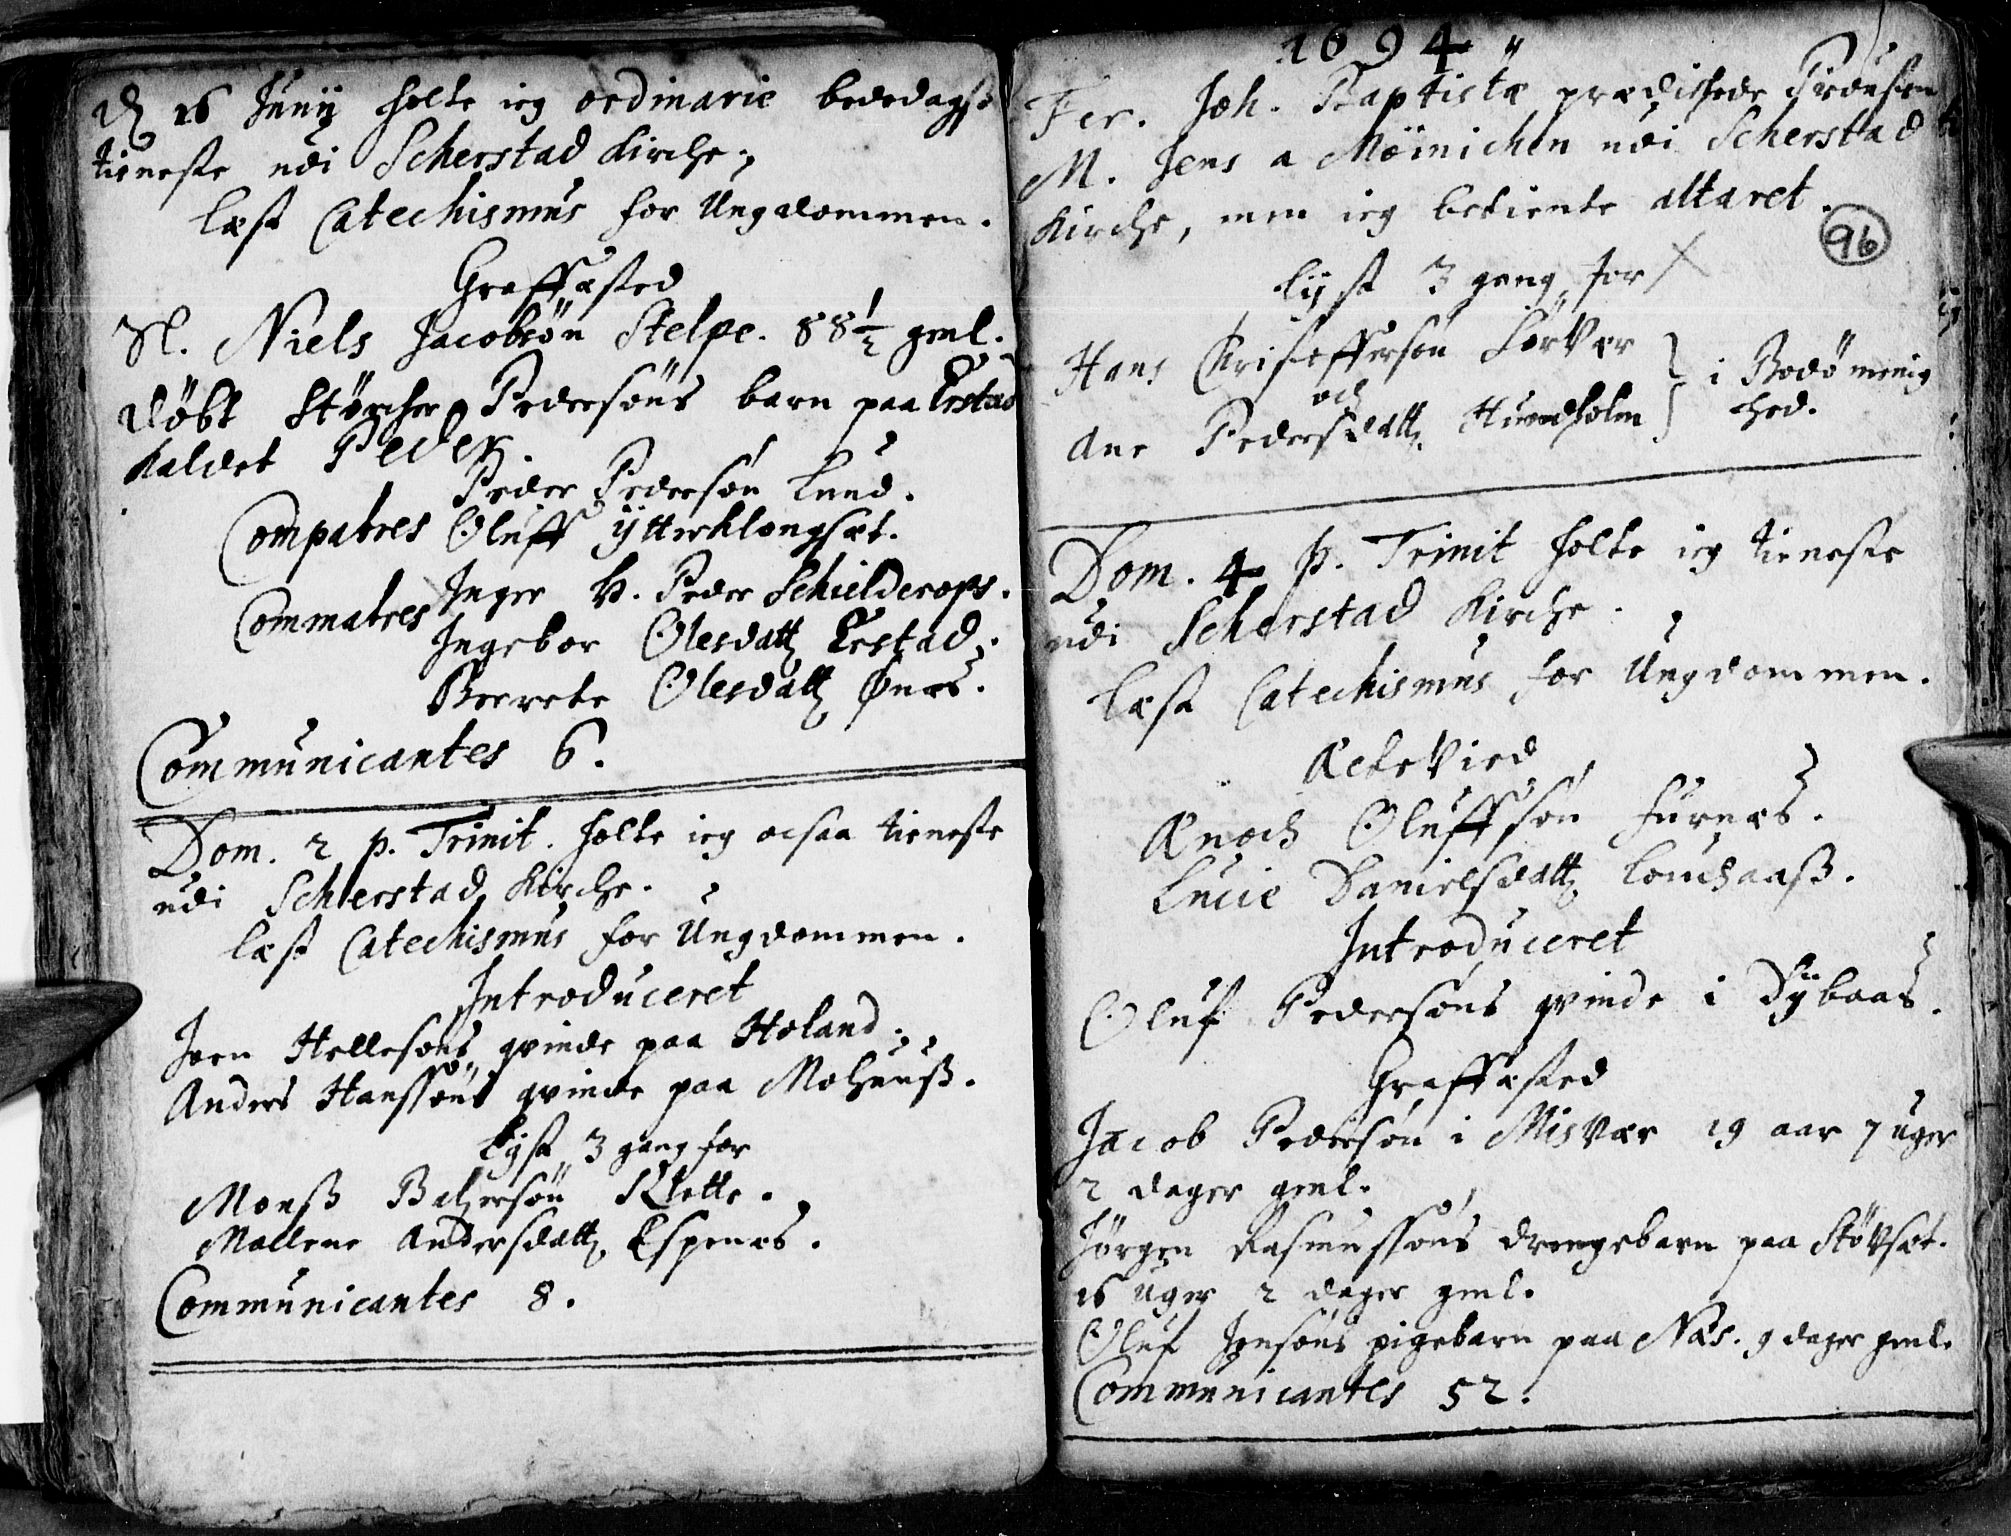 D. 16 Junij holte ieg ordinarie bededagss
tieneste udi Scherstad Kirche;
læst Catechismus for Ungdommen.
Graffæsted
Sl. Niels Jacobsön Stelpe. 88½ gml.
Döbt Störcher Pedersöns barn paa Erstad
kaldet Peder.
Peder Pedersön Lund.
Compatres Oluff ÿtterklongsæt.
Commatres Inger H. Peder Schielderops.
Ingebor Olesdatt Erstad.
Berrete Olesdatt Ønæs.
Communicantes 6.
Dom. 2 p. Trinit. holte ieg ocsaa tieneste
udi Scherstad Kirche.
læst Catechismus for Ungdommen.
Introduceret
Joen Hellesöns qvinde paa Holand.
Anders Hanssöns qvinde paa Molhuuß.
Lyst 3 gang for
Monß Baltzersön Klette.
Mallene Andersdatt Espenæs.
Communicantes 8.
1694
Fer. Joh. Baptistæ prædichede Provsten
M. Jens a Möinichen udi Scherstad
Kirche, men ieg betiente altaret.
96
lijst 3 gang for
Hans Christoffersön Sörvær
och
i Bodö menig
hed.
Ane Pedersdatt Hundholm
Dom. 4 p. Trinit holte ieg tieneste
udi Scherstad Kirche.
læst Catechismus for Ungdommen.
Ectevied
Enoch Oluffsön Furnæs.
Lucie Danielsdatt Louchaaß.
Introduceret
Oluf Pedersöns qvinde i Dÿbaas.
Graffæsted
Jacob Pedersön i Misvær 19 aar 7 uger
2 dager gml.
Jörgen Rasmussöns drengebarn paa Stövsæt.
16 uger 2 dager gml.
Oluf Jensöns pigebarn paa Næs. 9 dager gml.
Communicantes 52.